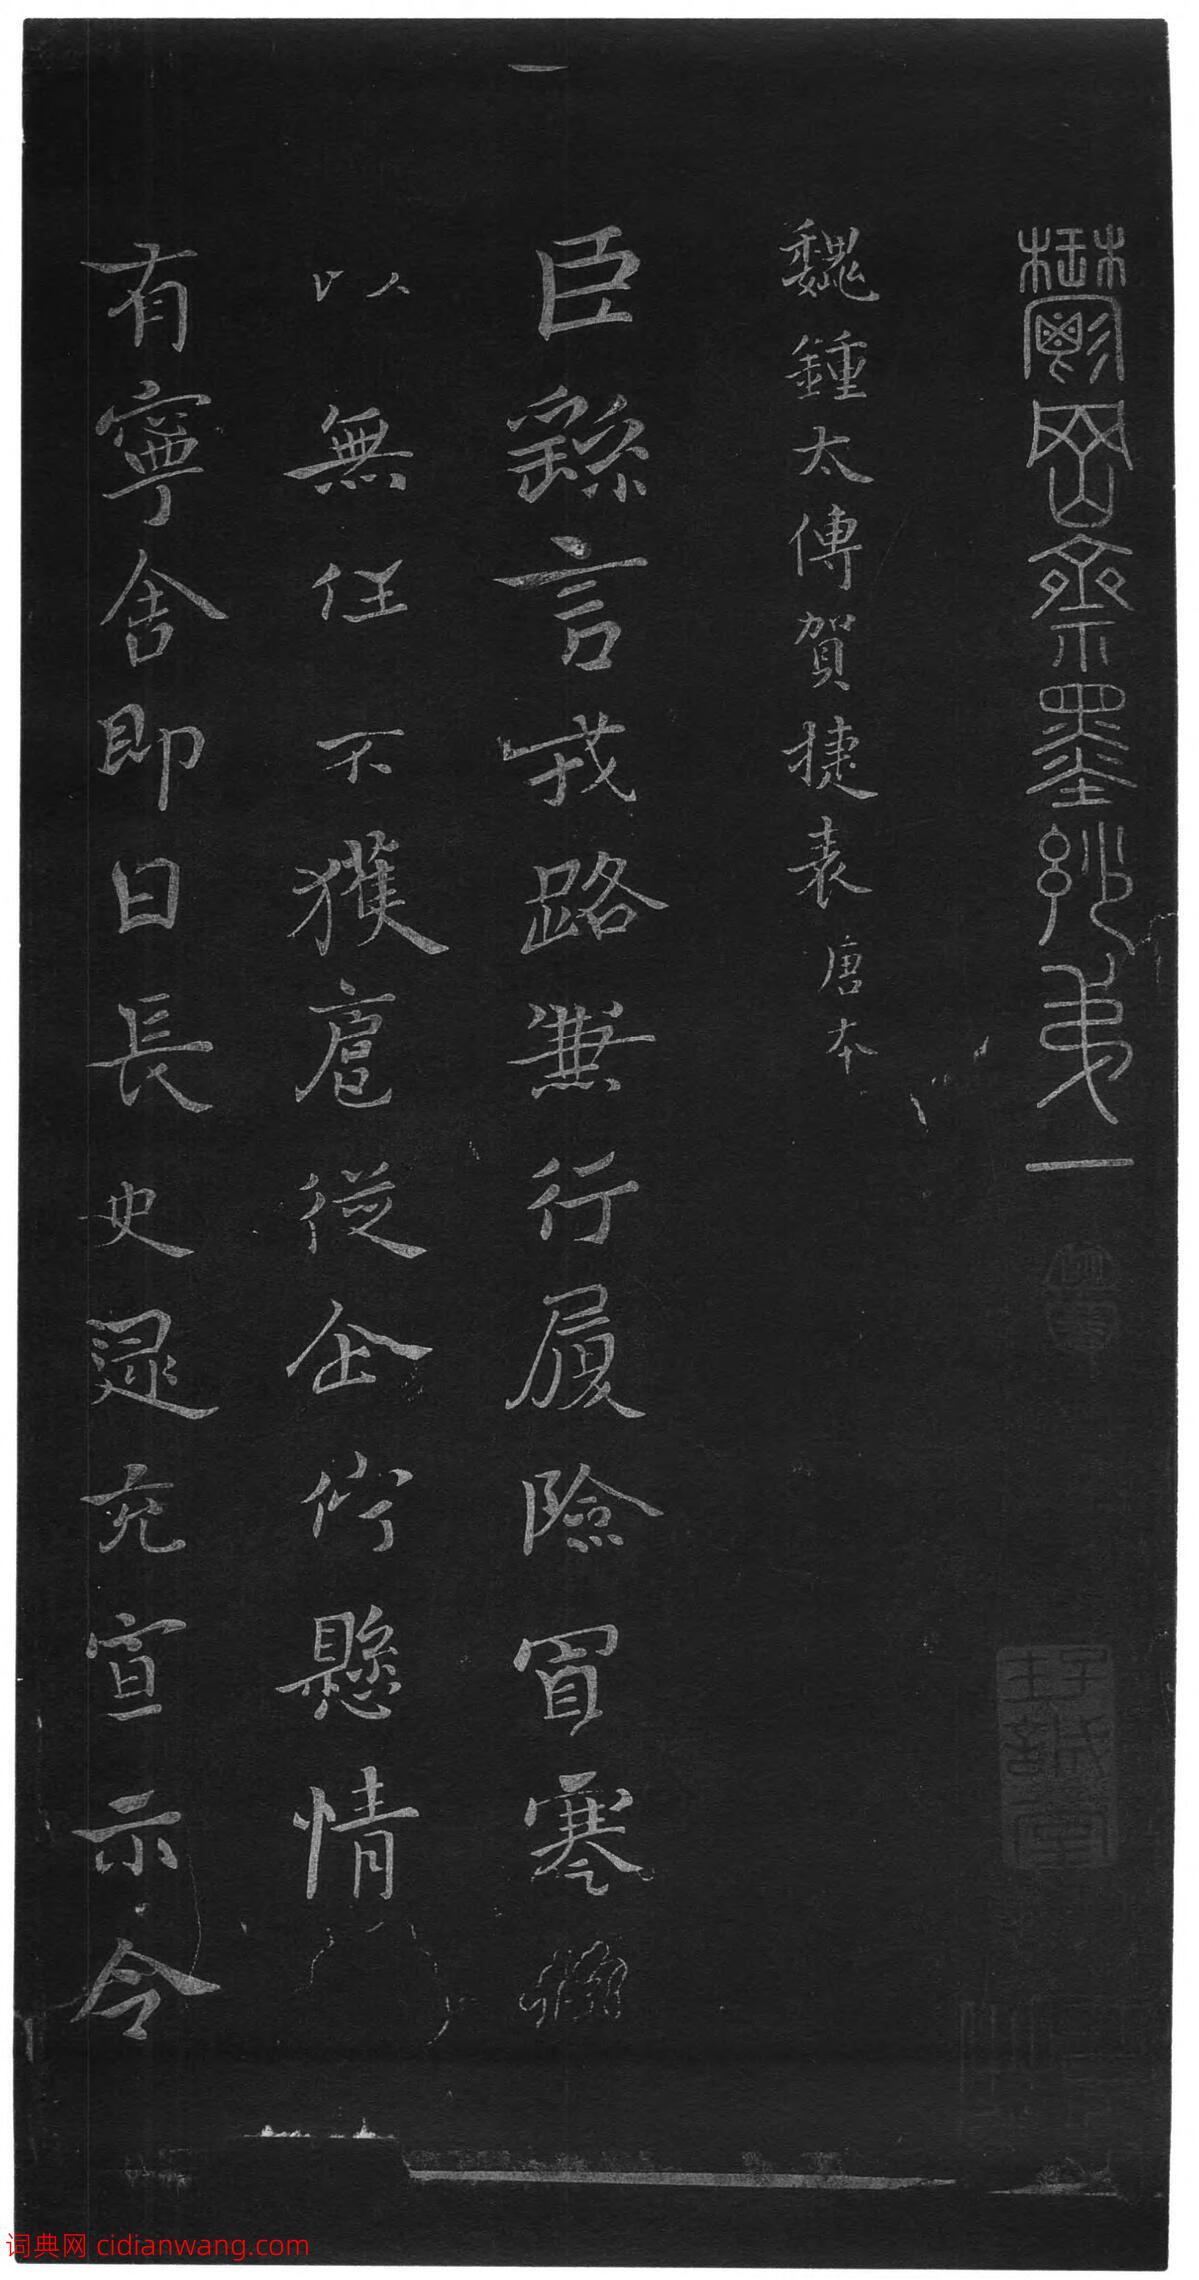 鬱岡齋墨妙第一
魏鍾太傅賀捷表 唐本
臣繇言戎路兼行履險冒寒
以無任不獲扈從企佇懸情
有寧舍即日長史逯充宣示令
词典网 cidianwang.com